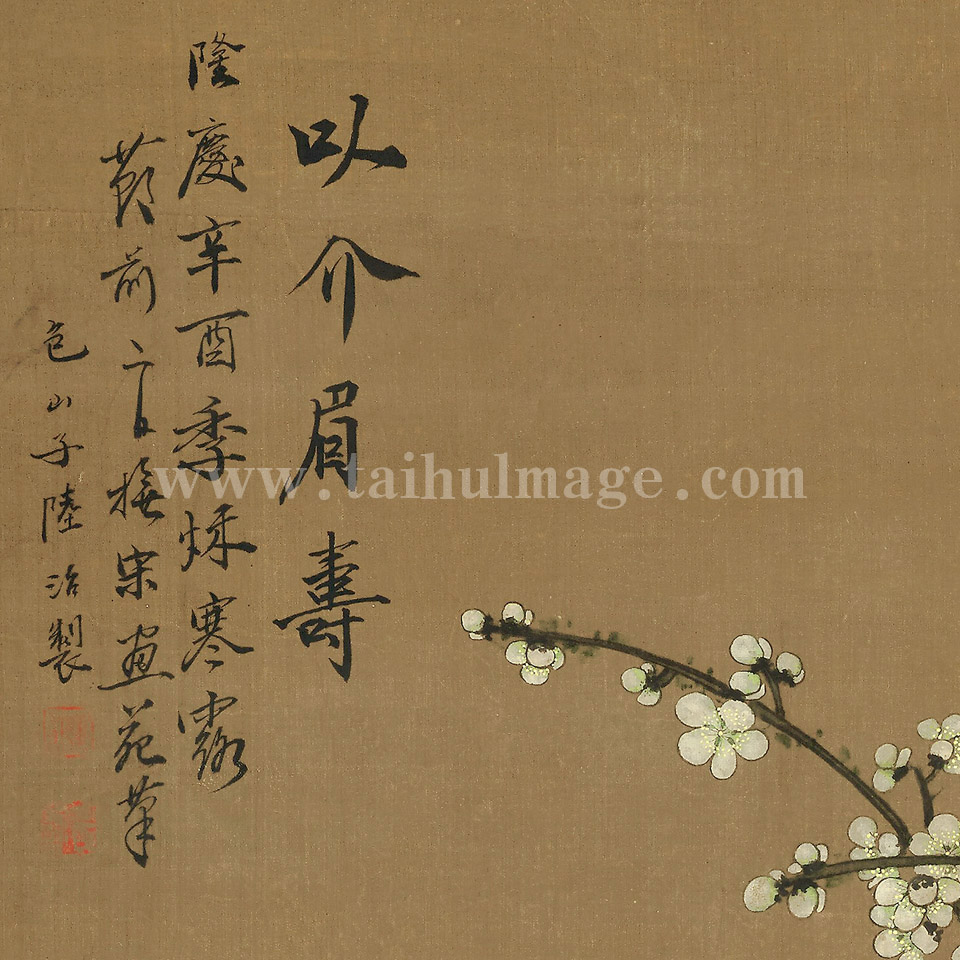 以介眉壽
隆慶辛酉季秌寒露
莭前日橅宋畫苑筆
包山子陸治製
www.taihuImage.com